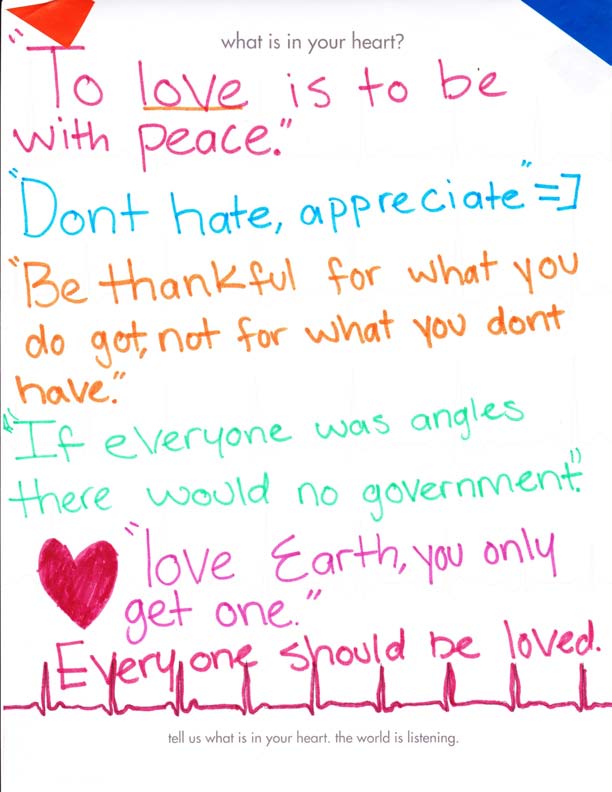 what is in your heart?
"To love is to be
with peace."
"Dont hate, appreciate" =]
"Be thankful for what you
do got, not for what you dont
have."
"If everyone was angles
there would no government."
"love Earth, you only
get one."
Everyone should be loved.
tell us what is in your heart. the world is listening.